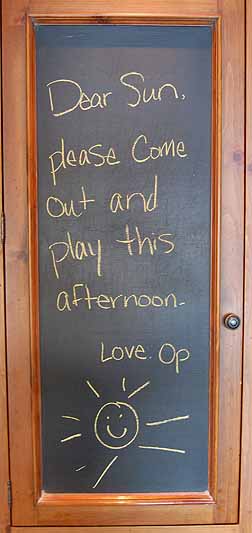 Dear Sun,
please Come
Out and
play this
afternoon.
Love. Op